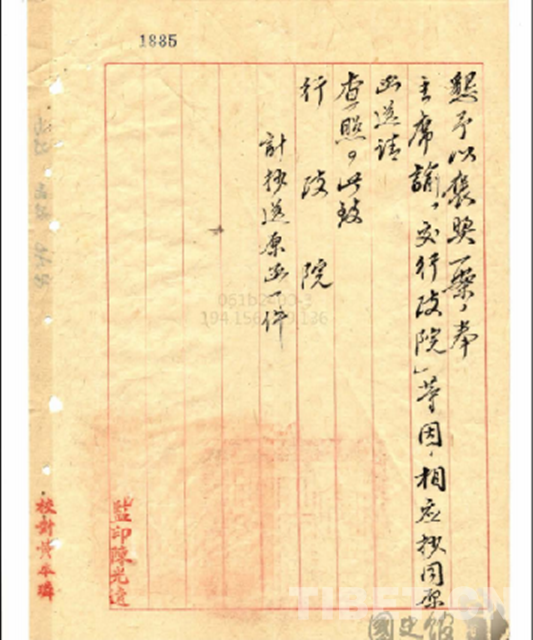 1885
懇予以褒奬一案，奉
主席諭，交行政院」等因，相應抄同原
函送請
查照。此致
行政院
計抄送原函一件
監印陳光遠
校對黃
TIBET.CN
國史館